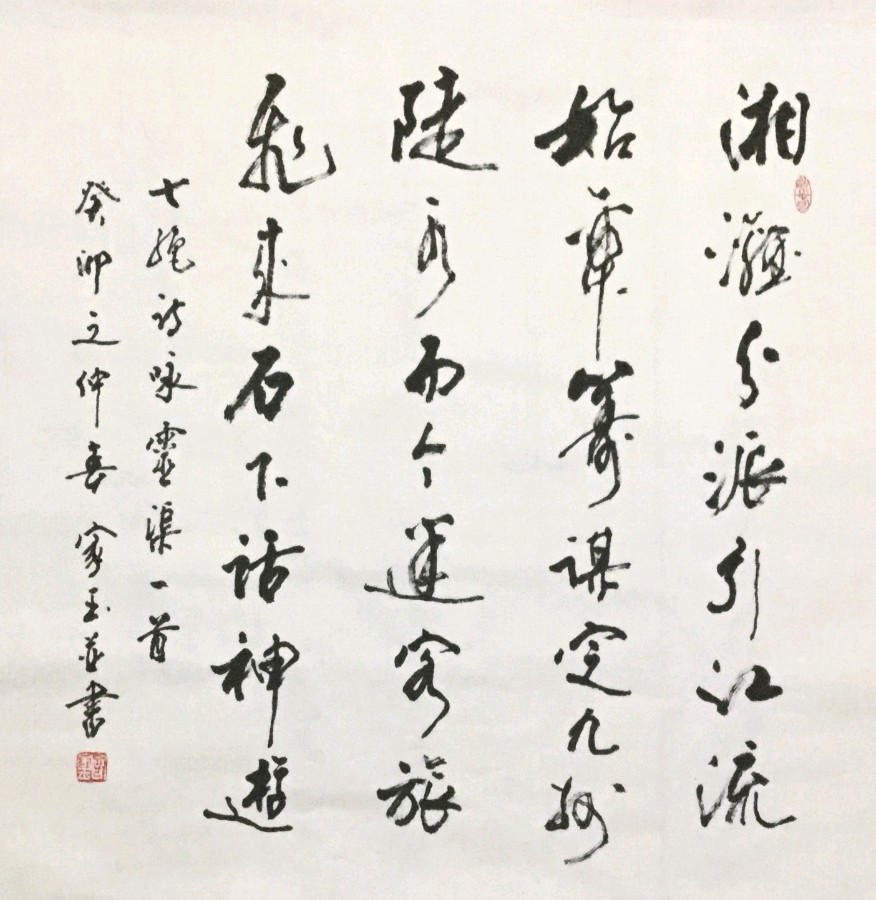 湘灕分派引江流
始籌謀定九州
陡而今客旅
飛來石下話神遊
七絕詩咏靈渠一首
癸卯之仲春家玉並書